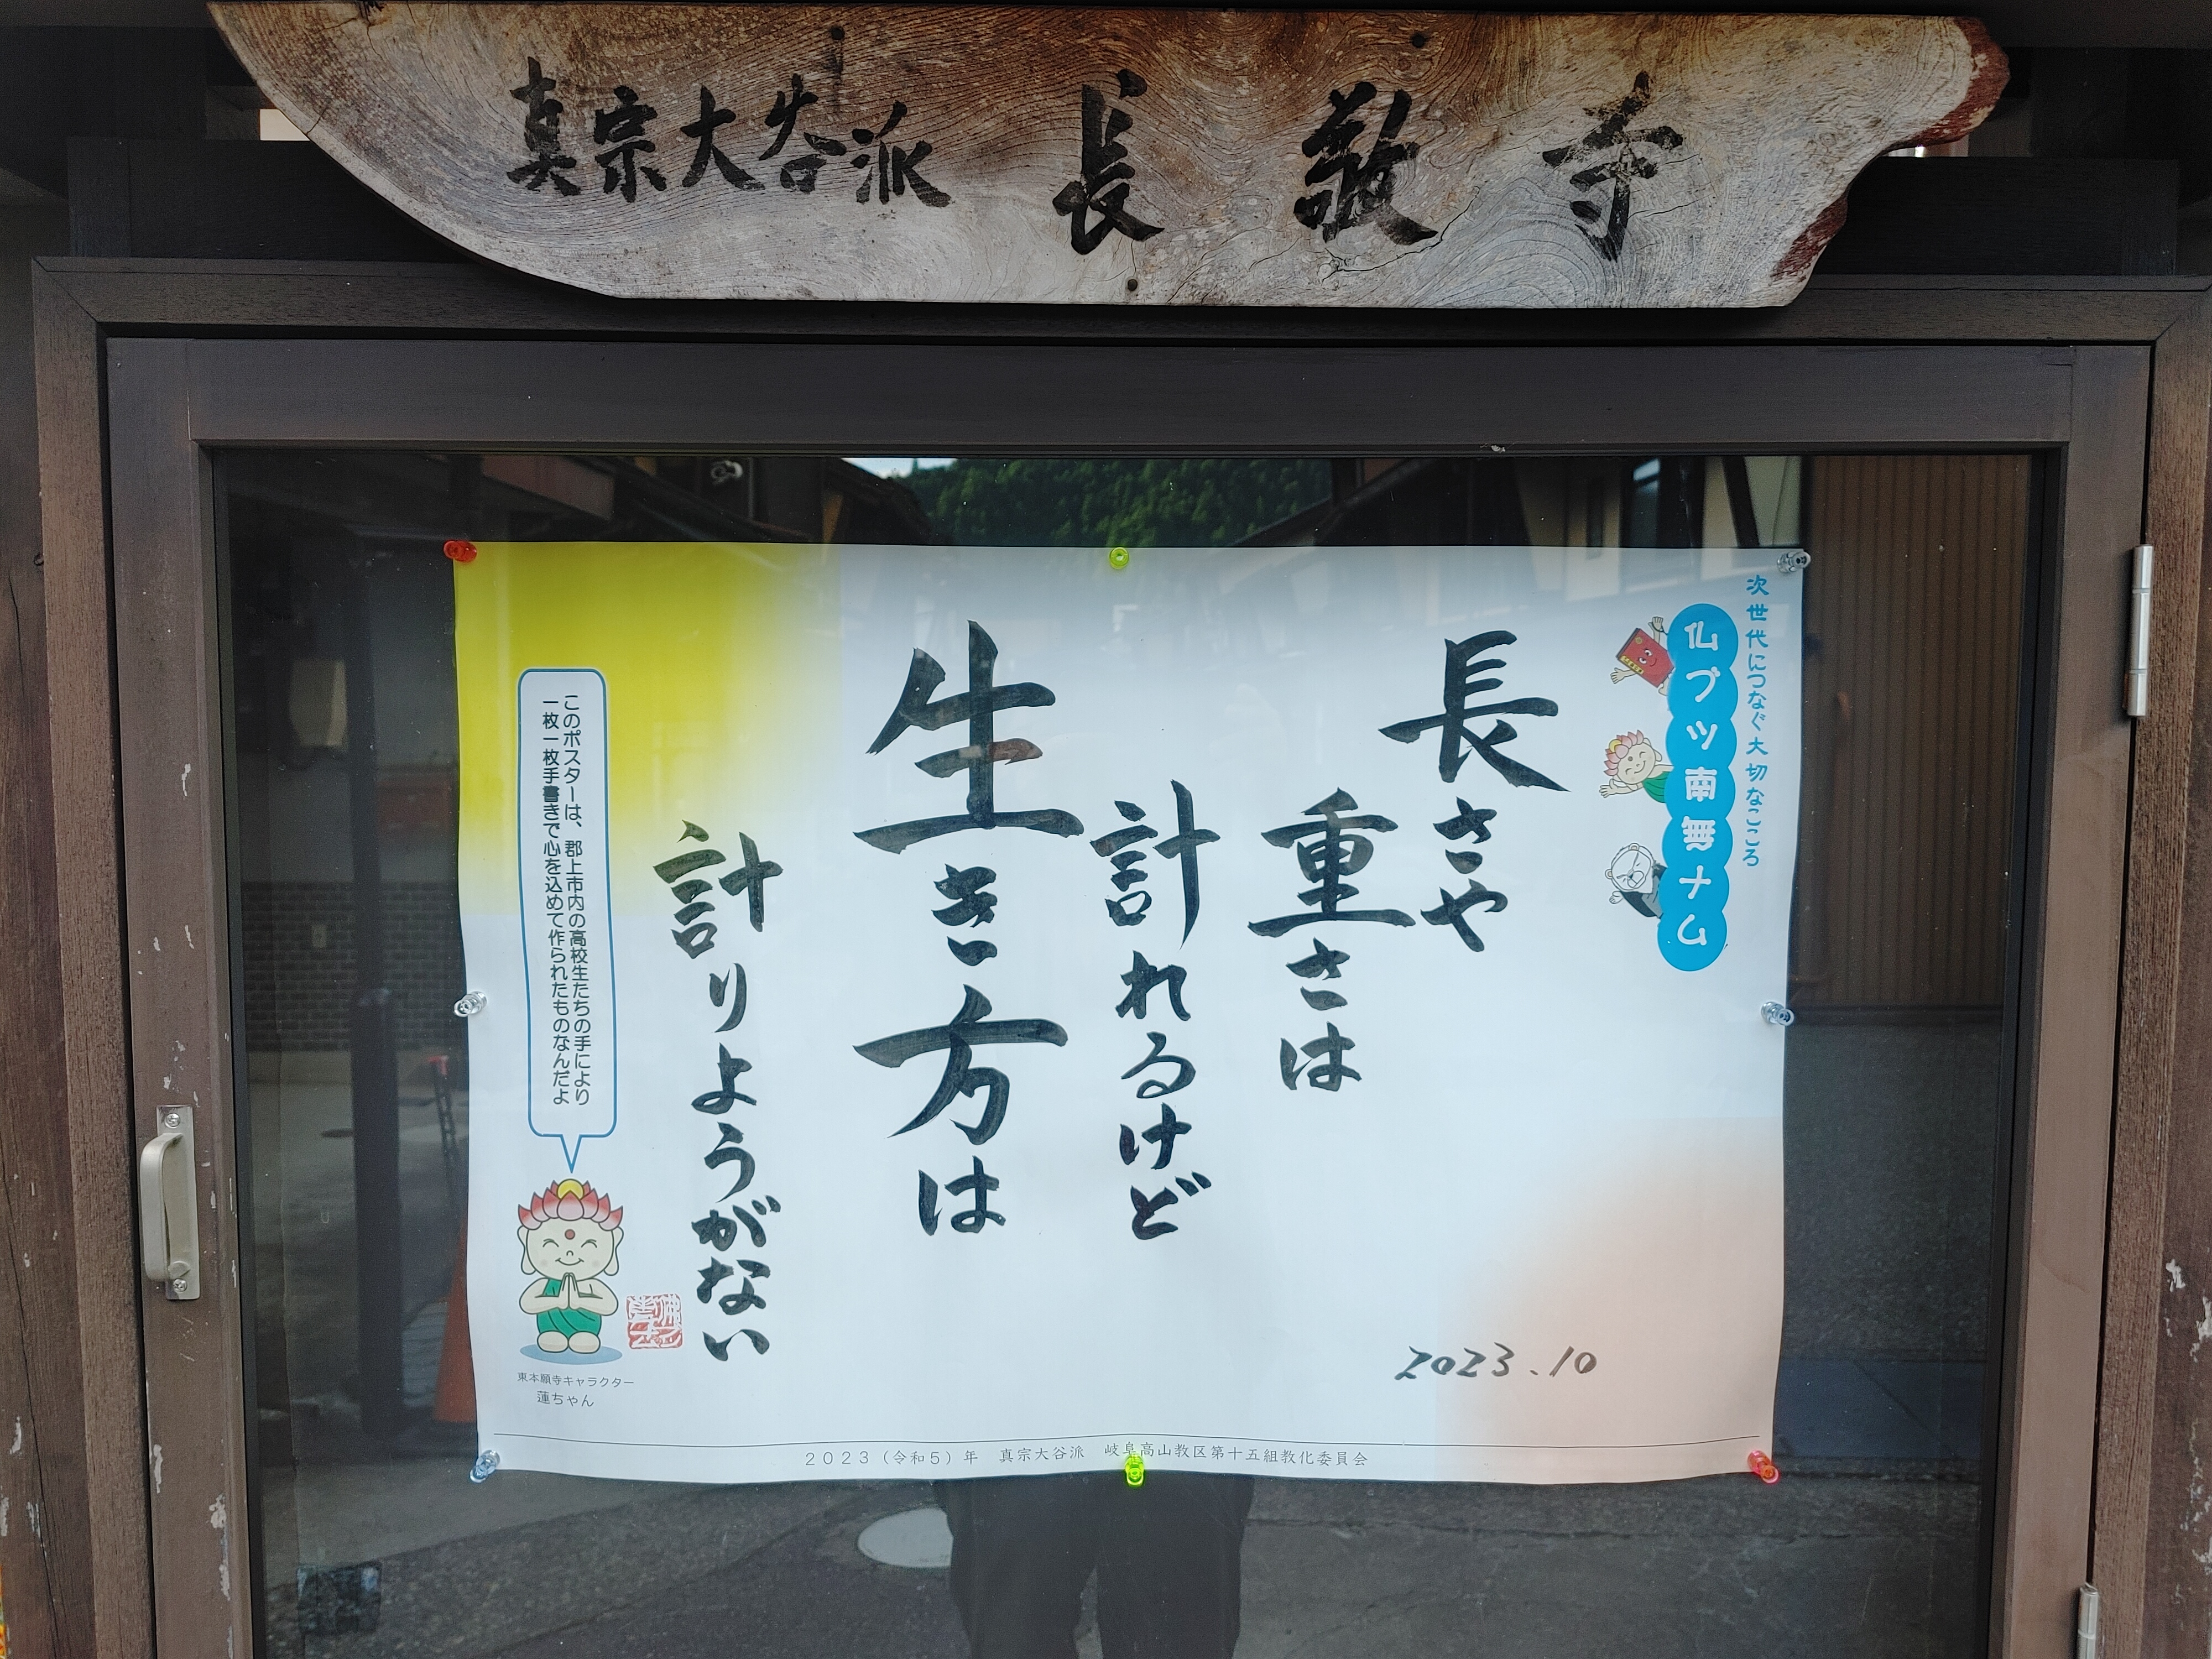 真宗大谷派 長敬寺
次世代につなぐ大切なこころ
仏ブツ南無ナム
長さや
重さは
計れるけど
生き方は
計りようがない
このポスターは、郡上市内の高校生たちの手により
一枚一枚手書きで心を込めて作られたものなんだよ
東本願寺キャラクター
蓮ちゃん
2023.10
2023（令和5）年 真宗大谷派 岐阜高山教区第十五組教化委員会